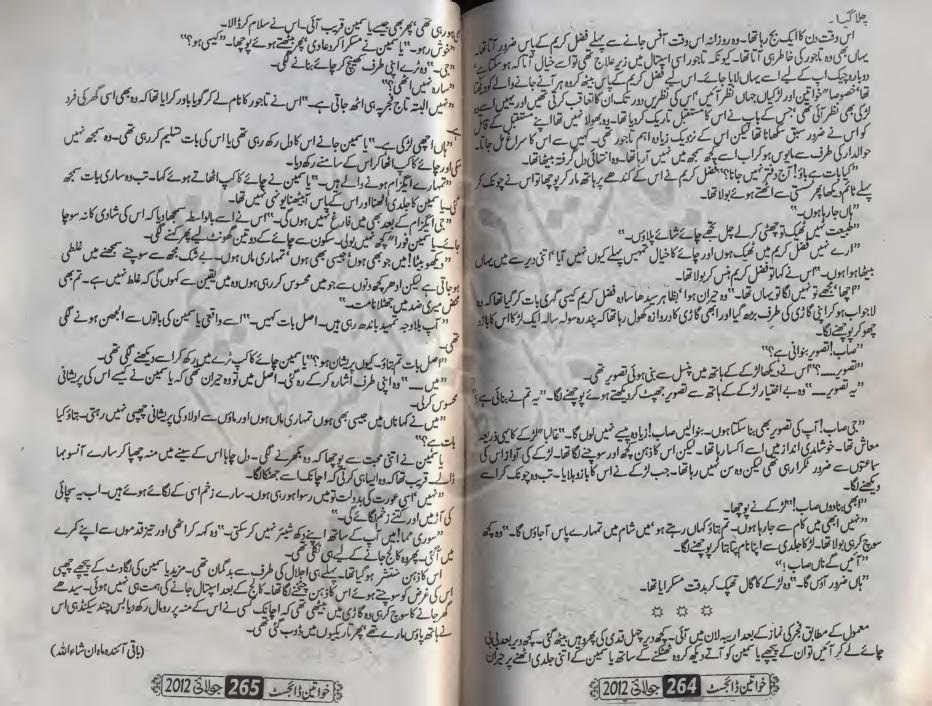 چلا گیا۔
اس وقت دن کا ایک بج رہا تھا۔ وہ روزانہ اس وقت آفس جانے سے پہلے فضل کریم کے پاس ضرور آتا تھا۔
یہاں بھی وہ تاجور کی خاطر ہی آتا تھا۔ کیونکہ تاجور اسی اسپتال میں زیر علاج تھی تو اسے خیال آتا کہ ہو سکتا ہے
دوبارہ چیک اپ کے لیے اسے یہاں لایا جائے۔ اس لیے فضل کریم کے پاس بیٹھ کر وہ ہر آنے جانے والے کو دیکھتا
تھا خصوصاً خواتین اور لڑکیاں جہاں نظر آتیں اس کی نظریں دور تک ان کا تعاقب کرتی تھیں اور یہیں اسے وہ
لڑکی بھی نظر آئی تھی جس کے باپ نے اس کا مستقبل تاریک کر دیا تھا۔ وہ بھولا نہیں تھا اپنے مستقبل کے قاتل
کو اس نے ضرور سبق سکھانا تھا لیکن اس کے نزدیک زیادہ اہم تاجور تھی۔ کہیں سے اس کا سراغ مل جاتا۔
حوالدار کی طرف سے مایوس ہو کر اب اسے کچھ سمجھ میں نہیں آ رہا تھا۔ وہ انتہائی دل گرفتہ بیٹھا تھا۔
"کیا بات ہے باؤ! آج دفتر نہیں جانا؟" فضل کریم نے اس کے کندھے پر ہاتھ مار کر پوچھا تو اس نے چونک کر
پہلے ٹائم دیکھا پھر سستی سے اٹھتے ہوئے بولا تھا۔
"ہاں جا رہا ہوں۔"
"طبیعت نہیں ٹھیک تو چھٹی کر لے چل تجھے چائے شائے پلاؤں۔"
"ارے نہیں فضل کریم میں ٹھیک ہوں اور چائے کا خیال تمہیں پہلے کیوں نہیں آیا؟ اتنی دیر سے میں یہاں
بیٹھا ہوا ہوں۔" اس نے کہا تو فضل کریم ہنس کر بولا تھا۔
"اچھا! مجھے تو نہیں لگا تو یہاں تھا۔" وہ حیران ہوا بظاہر سیدھا سادہ فضل کریم کیسی گہری بات کر گیا تھا کہ وہ
لاجواب ہو کر اپنی گاڑی کی طرف بڑھ گیا اور ابھی گاڑی کا دروازہ کھول رہا تھا کہ پندرہ سولہ سالہ ایک لڑکا اس کا بازو
چھو کر پوچھنے لگا۔
"صاب! تصویر بنوانی ہے؟"
"تصویر ــــ؟" اس نے دیکھا لڑکے کے ہاتھ میں پنسل سے بنی ہوئی تصویر تھی۔
"یہ تصویر ــــ" وہ بے اختیار لڑکے کے ہاتھ سے تصویر جھپٹ کر دیکھتے ہوئے پوچھنے لگا۔ "یہ تم نے بنائی ہے؟"
"جی صاب! آپ کی تصویر بھی بنا سکتا ہوں۔ بنوا لیں صاب! زیادہ پیسے نہیں لوں گا۔" غالباً لڑکے کا یہی ذریعہ
معاش تھا۔ خوشامدی انداز میں اسے اکسا رہا تھا۔ لیکن اس کا ذہن کچھ اور سوچنے لگا تھا۔ لڑکے کی آواز اس کی
سماعتوں سے ضرور ٹکرا رہی تھی لیکن وہ سن نہیں رہا تھا۔ جب لڑکے نے اس کا بازو ہلایا۔ تب وہ چونک کر اسے
دیکھنے لگا۔
"ابھی بنا دوں صاب!" لڑکے نے پوچھا۔
"نہیں ابھی میں کام سے جا رہا ہوں۔ تم بتاؤ کہاں رہتے ہو میں شام میں تمہارے پاس آ جاؤں گا۔" وہ کچھ
سوچ کر ہی بولا تھا۔ لڑکا جلدی سے اپنا نام پتا بتا کر پوچھنے لگا۔
"آئیں گے ناں صاب!"
"ہاں ضرور آؤں گا۔" وہ لڑکے کا گال تھپک کر بدقت مسکرایا تھا۔
☆ ☆ ☆
معمول کے مطابق فجر کی نماز کے بعد اریبہ لان میں آئی۔ کچھ دیر چہل قدمی کی پھر وہیں بیٹھ گئی۔ کچھ دیر بعد بی بی
چائے لے کر آئیں تو ان کے پیچھے یاسمین کو آتے دیکھ کر وہ ٹھٹکنے کے ساتھ یاسمین کے اتنی جلدی اٹھنے پر حیران
خواتین ڈائجسٹ 264 جولائی 2012
ہو رہی تھی پھر بھی جیسے یاسمین قریب آئی۔ اس نے سلام کر ڈالا۔
"خوش رہو۔" یاسمین نے مسکرا کر دعا دی پھر بیٹھتے ہوئے پوچھا۔ "کیسی ہو؟"
"جی۔" وہ ٹرے اپنی طرف کھینچ کر چائے بنانے لگی۔
"سارہ نہیں اٹھی؟"
"نہیں البتہ تاج فجر پہ ہی اٹھ جاتی ہے۔" اس نے تاجور کا نام لے کر گویا باور کرایا تھا کہ وہ بھی اسی گھر کی فرد
ہے۔
"ہاں اچھی لڑکی ہے۔" یاسمین جانے اس کا دل رکھ رہی تھی یا اس کی بات تسلیم کر رہی تھی۔ وہ سمجھ نہیں
سکی اور چائے کا کپ اٹھا کر اس کے سامنے رکھ دیا۔
"تمہارے ایگزام ہونے والے ہیں۔" یاسمین نے چائے کا کپ اٹھاتے ہوئے کہا۔ تب وہ ساری بات سمجھ
گئی۔ یاسمین کا جلدی اٹھنا اور اس کے پاس آ بیٹھنا یونہی نہیں تھا۔
"جی ایگزام کے بعد بھی میں فارغ نہیں ہوں گی۔" اس نے اسے بالواسطہ سمجھا دیا کہ اس کی شادی کا نہ سوچا
جائے۔ یاسمین فوراً کچھ نہیں بولی۔ سکون سے چائے کے دو تین گھونٹ لیے پھر کہنے لگی۔
"دیکھو بیٹا! میں جو بھی ہوں جیسی بھی ہوں تمہاری ماں ہوں۔ بے شک مجھ سے سوچنے سمجھنے میں غلطی
ہو جاتی ہے لیکن ادھر کچھ دنوں سے جو میں محسوس کر رہی ہوں وہ میں یقین سے کہوں گی کہ غلط نہیں ہے۔ تم بھی
محض میری ضد میں جھٹلانا مت۔"
"آپ بلاوجہ تمہید باندھ رہی ہیں۔ اصل بات کہیں۔" اسے واقعی یاسمین کی باتوں سے الجھن ہونے لگی
تھی۔
"اصل بات تم بتاؤ۔ کیوں پریشان ہو؟" یاسمین چائے کا کپ ٹرے میں رکھ کر اسے دیکھنے لگی تھی۔
"میں ــــ" وہ اپنی طرف اشارہ کر کے رہ گئی۔ اصل میں تو وہ حیران تھی کہ یاسمین نے کیسے اس کی پریشانی
محسوس کر لی۔
"میں نے کہا ناں میں جیسی بھی ہوں تمہاری ماں ہوں اور ماؤں سے اولاد کی پریشانی چھپی نہیں رہتی۔ بتاؤ کیا
بات ہے؟"
یاسمین نے اتنی محبت سے پوچھا کہ وہ بکھرنے لگی۔ دل چاہا اس کے سینے میں منہ چھپا کر سارے آنسو بہا
ڈالے۔ قریب تھا کہ وہ ایسا ہی کرتی کہ اچانک اسے جھٹکا لگا۔
"نہیں اسی عورت کی بدولت تو میں رسوا ہو رہی ہوں۔ سارے زخم اسی کے لگائے ہوئے ہیں۔ اب یہ سچائی
کی آڑ میں اور کتنے زخم لگائے گی۔"
"سوری مما! میں آپ کے ساتھ اپنے دکھ شیئر نہیں کر سکتی۔" وہ کہہ کر اٹھی اور تیز قدموں سے اپنے کمرے
میں آ گئی۔ پھر وہ کالج جانے کے لیے ہی نکلی تھی۔
اس کا ذہن منتشر ہو گیا تھا۔ پہلے ہی اجلال کی طرف سے بدگمان تھی۔ مزید یاسمین کی لگاوٹ کے پیچھے چھپی
اس کی غرض کو سوچتے ہوئے اس کا ذہن چٹخنے لگا تھا۔ کالج کے بعد اسپتال جانے کی ہمت ہی نہیں ہوئی۔ سیدھے
گھر جانے کا سوچ کر ہی وہ گاڑی میں بیٹھی تھی کہ اچانک کسی نے اس کے منہ پر رومال رکھ دیا بس چند سیکنڈ ہی اس
نے ہاتھ پاؤں مارے تھے پھر تاریکیوں میں ڈوب گئی تھی۔
(باقی آئندہ ماہ ان شاء اللہ)
خواتین ڈائجسٹ 265 جولائی 2012